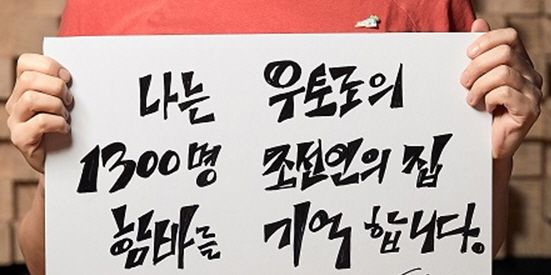 나는 우토로의
1300명 조선인의 집
함바를 기억 합니다.